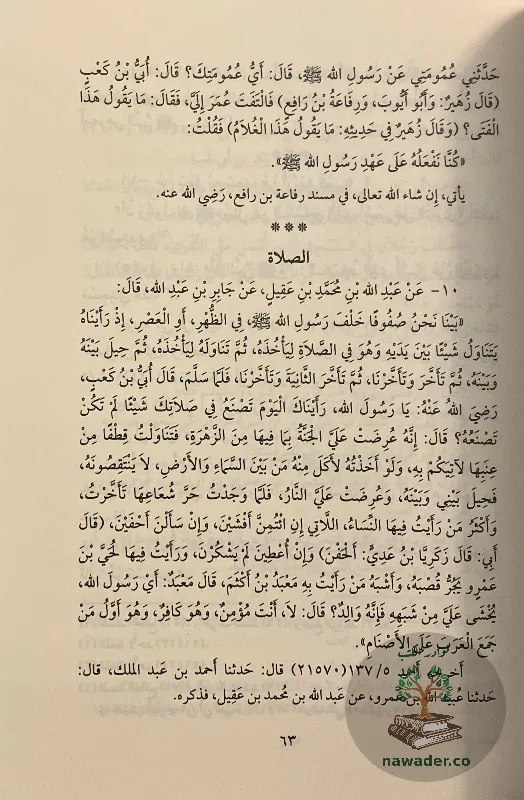 حَدَّثَنِي عُمُومَتِي عَنْ رَسُولِ الله ﷺ، قَالَ: أَيُّ عُمُومَتِكَ؟ قَالَ: أُبَيُّ بْنُ كَعْبٍ
(قَالَ زُهَيْرٌ: وَأَبُو أَيُّوبَ، وَرِفَاعَةُ بْنُ رَافِعٍ) فَالْتَفَتَ عُمَرُ إِلَيَّ، فَقَالَ: مَا يَقُولُ هَذَا
الْفَتَى؟ (وَقَالَ زُهَيْرٌ فِي حَدِيثِهِ: مَا يَقُولُ هَذَا الْغُلَامُ) فَقُلْتُ:
«كُنَّا نَفْعَلُهُ عَلَى عَهْدِ رَسُولِ الله ﷺ».
يأتي، إن شاء الله تعالى، في مسند رفاعة بن رافع، رَضِي الله عنه.
***
الصلاة
١٠- عَنْ عَبْدِ الله بْنِ مُحَمَّدِ بْنِ عَقِيلٍ، عَنْ جَابِرِ بْنِ عَبْدِ الله، قَالَ:
«بَيْنَا نَحْنُ صُفُوفًا خَلْفَ رَسُولِ الله ﷺ، فِي الظُّهْرِ، أَوِ الْعَصْرِ، إِذْ رَأَيْنَاهُ
يَتَنَاوَلُ شَيْئًا بَيْنَ يَدَيْهِ وَهُوَ فِي الصَّلَاةِ لِيَأْخُذَهُ، ثُمَّ تَنَاوَلَهُ لِيَأْخُذَهُ، ثُمَّ حِيلَ بَيْنَهُ
وَبَيْنَهُ، ثُمَّ تَأَخَّرَ وَتَأَخَّرْنَا، ثُمَّ تَأَخَّرَ الثَّانِيَةَ وَتَأَخَّرْنَا، فَلَمَّا سَلَّمَ، قَالَ أُبَيُّ بْنُ كَعْبٍ،
رَضِيَ اللهُ عَنْهُ: يَا رَسُولَ الله، رَأَيْنَاكَ الْيَوْمَ تَصْنَعُ فِي صَلَاتِكَ شَيْئًا لَمْ تَكُنْ
تَصْنَعُهُ؟ قَالَ: إِنَّهُ عُرِضَتْ عَلَيَّ الْجَنَّةُ بِمَا فِيهَا مِنَ الزَّهْرَةِ، فَتَنَاوَلْتُ قِطْفًا مِنْ
عِنَبِهَا لآتِيَكُمْ بِهِ، وَلَوْ أَخَذْتُهُ لأَكَلَ مِنْهُ مَنْ بَيْنَ السَّمَاءِ وَالأَرْضِ، لَا يَنْتَقِصُونَهُ،
فَحِيلَ بَيْنِي وَبَيْنَهُ، وَعُرِضَتْ عَلَيَّ النَّارُ، فَلَمَّا وَجَدْتُ حَرَّ شُعَاعِهَا تَأَخَّرْتُ،
وَأَكْثَرُ مَنْ رَأَيْتُ فِيهَا النِّسَاءُ، اللَّاتِي إِنِ ائْتُمِنَّ أَفْشَيْنَ، وَإِنْ سَأَلْنَ أَحْفَيْنَ، (قَالَ
أَبِي: قَالَ زَكَرِيَّا بْنُ عَدِيٍّ: أَلْحَفْنَ) وَإِنْ أُعْطِينَ لَمْ يَشْكُرْنَ، وَرَأَيْتُ فِيهَا لُحَيَّ بْنَ
عَمْرٍو يَجُرُّ قُصْبَهُ، وَأَشْبَهُ مَنْ رَأَيْتُ بِهِ مَعْبَدُ بْنُ أَكْثَمَ، قَالَ مَعْبَدٌ: أَيْ رَسُولَ الله،
يُخْشَى عَلَيَّ مِنْ شَبَهِهِ فَإِنَّهُ وَالِدٌ؟ قَالَ: لَا، أَنْتَ مُؤْمِنٌ، وَهُوَ كَافِرٌ، وَهُوَ أَوَّلُ مَنْ
جَمَعَ الْعَرَبَ عَلَى الأَصْنَامِ».
أخرجه أحمد ٥/١٣٧(٢١٥٧٠) قال: حَدثنا أحمد بن عَبد الملك، قال:
حَدثنا عُبيد الله بن عَمرو، عن عَبد الله بن مُحمد بن عَقيل، فذكره.
٦٣
nawader.co